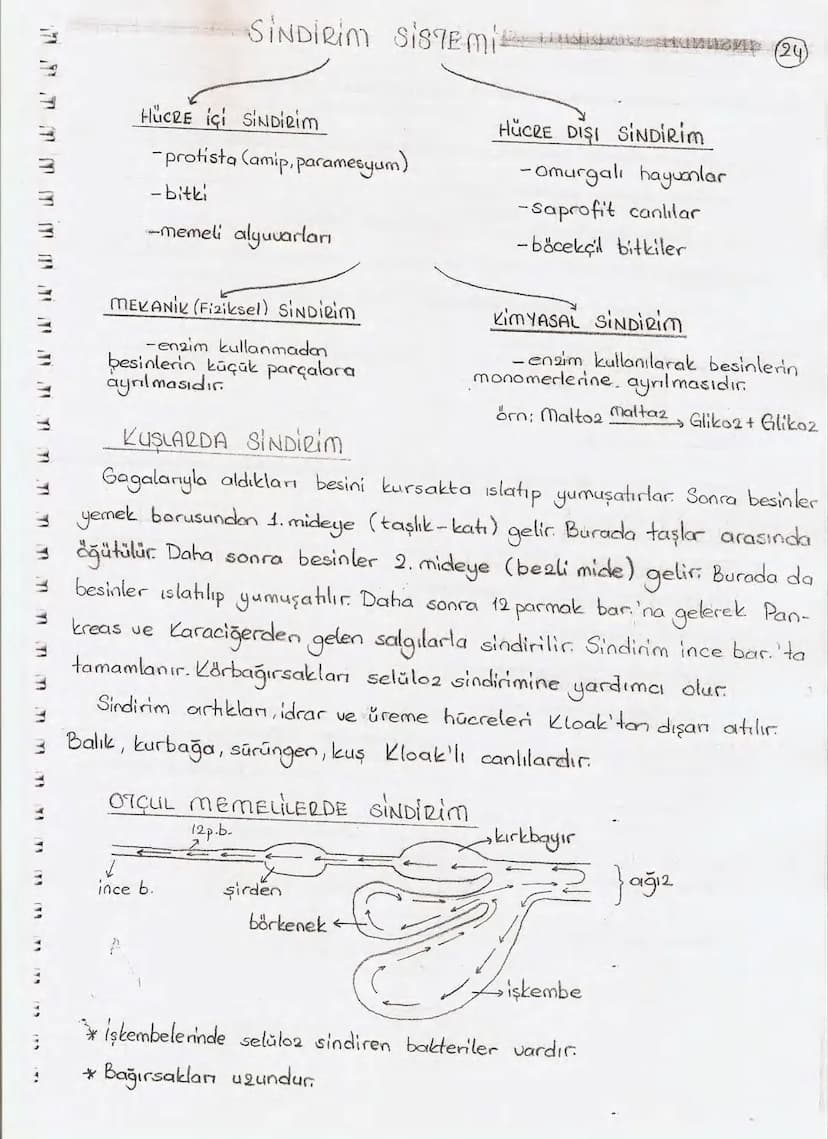 SİNDİRİM SİSTEMİ
24
HÜCRE İÇİ SİNDİRİM
-protista (amip, paramesyum)
-bitki
-memeli alyuvarları
HÜCRE DIŞI SİNDİRİM
-omurgalı hayvanlar
-saprofit canlılar
-böcekçil bitkiler
MEKANİK (Fiziksel) SİNDİRİM
-enzim kullanmadan
besinlerin küçük parçalara
ayrılmasıdır.
KİMYASAL SİNDİRİM
-enzim kullanılarak besinlerin
monomerlerine ayrılmasıdır.
örn: Maltoz Maltaz → Glikoz + Glikoz
KUŞLARDA SİNDİRİM
Gagalarıyla aldıkları besini kursakta ıslatıp yumuşatırlar. Sonra besinler
yemek borusundan 1. mideye (taşlık-katı) gelir. Burada taşlar arasında
öğütülür. Daha sonra besinler 2. mideye (bezli mide) gelir. Burada da
besinler ıslatılıp yumuşatılır. Daha sonra 12 parmak bar.'na gelerek Pan-
kreas ve Karaciğerden gelen salgılarla sindirilir. Sindirim ince bar.'ta
tamamlanır. Körbağırsakları selüloz sindirimine yardımcı olur.
Sindirim artıkları, idrar ve üreme hücreleri Kloak'tan dışarı atılır.
Balık, kurbağa, sürüngen, kuş Kloak'lı canlılardır.
OTÇUL MEMELİLERDE SİNDİRİM
12p.b.
kırkbayır
ağız
ince b.
şirden
börkenek
işkembe
* İşkembelerinde selüloz sindiren bakteriler vardır.
* Bağırsakları uzundur.